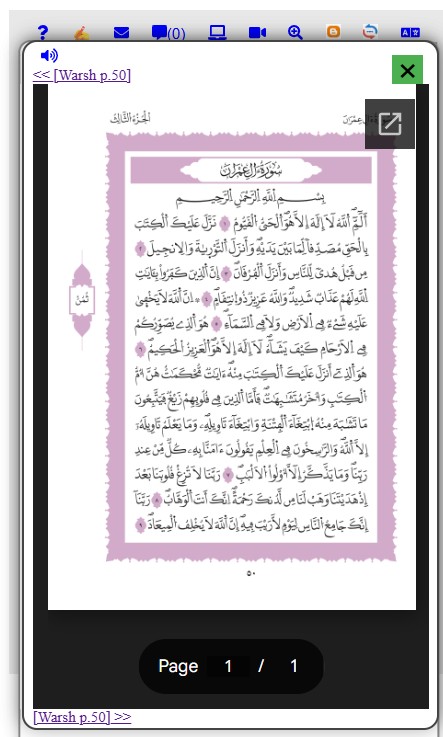 (0)
<< [Warsh p.50]
الجزء الثالث
سورة ال عمران
بِسْمِ اللَّهِ الرَّحْمَٰنِ الرَّحِيمِ
أَلَٓمِّٓ اللَّهُ لَآ إِلَٰهَ إِلَّا هُوَ ٱلْحَىُّ ٱلْقَيُّومُ ١ نَزَّلَ عَلَيْكَ ٱلْكِتَٰبَ
بِالْحَقِّ مُصَدِّقاً لِّمَا بَيْنَ يَدَيْهِ وَأَنزَلَ ٱلتَّوْر۪يٰةَ وَالِانجِيلَ ٢
مِن قَبْلُ هُدىً لِّلنَّاسِ وَأَنزَلَ ٱلْفُرْقَانَ ٣ إِنَّ ٱلذِينَ كَفَرُواْ بِـَٔايَٰتِ
ٱللَّهِ لَهُمْ عَذَابٌ شَدِيدٌ وَاللَّهُ عَزِيزٌ ذُو ٱنتِقَامٍ ٤ إِنَّ ٱللَّهَ لَا يَخْف۪يٰ
عَلَيْهِ شَےْءٌ فِے ٱلْأَرْضِ وَلَا فِے ٱلسَّمَآءِ ٥ هُوَ ٱلذِے يُصَوِّرُكُمْ
فِے ٱلْأَرْحَامِ كَيْفَ يَشَآءُ لَآ إِلَٰهَ إِلَّا هُوَ ٱلْعَزِيزُ ٱلْحَكِيمُ ٦
هُوَ ٱلذِےٓ أَنزَلَ عَلَيْكَ ٱلْكِتَٰبَ مِنْهُ ءَايَٰتٌ مُّحْكَمَٰتٌ هُنَّ أُمُّ
ٱلْكِتَٰبِ وَأُخَرُ مُتَشَٰبِهَٰتٌ فَأَمَّا ٱلذِينَ فِے قُلُوبِهِمْ زَيْغٌ فَيَتَّبِعُونَ
مَا تَشَٰبَهَ مِنْهُ ٱبْتِغَآءَ ٱلْفِتْنَةِ وَابْتِغَآءَ تَاوِيلِهِۦ وَمَا يَعْلَمُ تَاوِيلَهُۥٓ
إِلَّا ٱللَّهُ وَالرَّٰسِخُونَ فِے ٱلْعِلْمِ يَقُولُونَ ءَامَنَّا بِهِۦ كُلٌّ مِّنْ عِندِ
رَبِّنَا وَمَا يَذَّكَّرُ إِلَّآ أُوْلُواْ ٱلْأَلْبَٰبِ ٧ رَبَّنَا لَا تُزِغْ قُلُوبَنَا بَعْدَ
إِذْ هَدَيْتَنَا وَهَبْ لَنَا مِن لَّدُنكَ رَحْمَةً إِنَّكَ أَنتَ ٱلْوَهَّابُ ٨ رَبَّنَآ
إِنَّكَ جَامِعُ ٱلنَّاسِ لِيَوْمٍ لَّا رَيْبَ فِيهِ إِنَّ ٱللَّهَ لَا يُخْلِفُ ٱلْمِيعَادَ ٩
ثمن
٥٠
Page 1 / 1
[Warsh p.50] >>